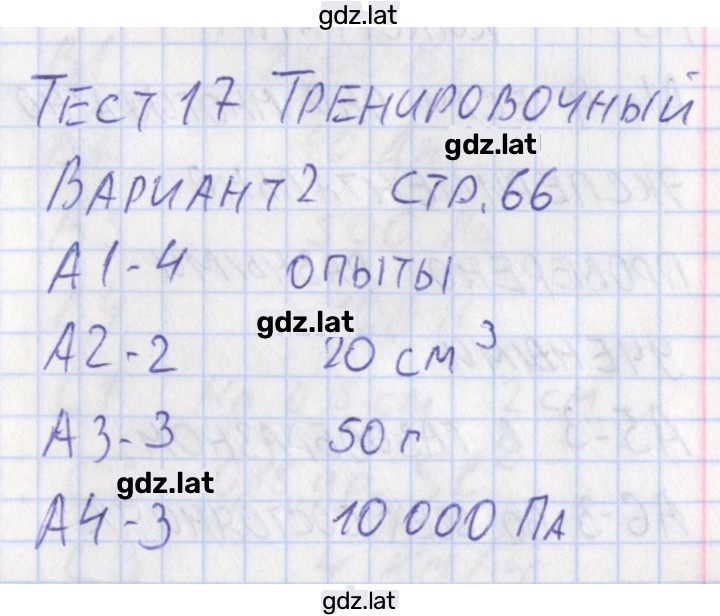 gdz.lat
Тест 17 Тренировочный
gdz.lat
Вариант 2 стр. 66
А1-4 опыты
gdz.lat
А2-2 20 см³
А3-3 50 г
gdz.lat
А4-3 10 000 Па
gdz.lat